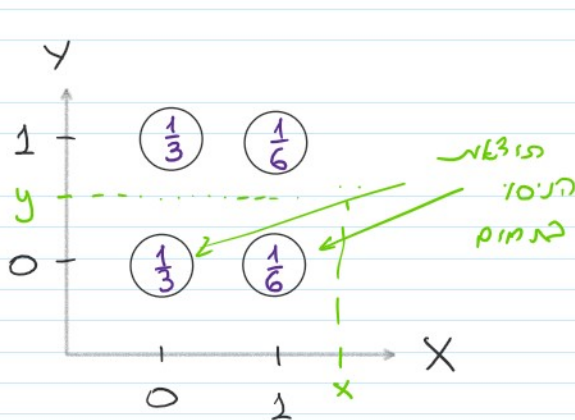 Y
1 1/3 1/6
תוצאות
y הניסוי
בתחום
0 1/3 1/6
X
0 1 x